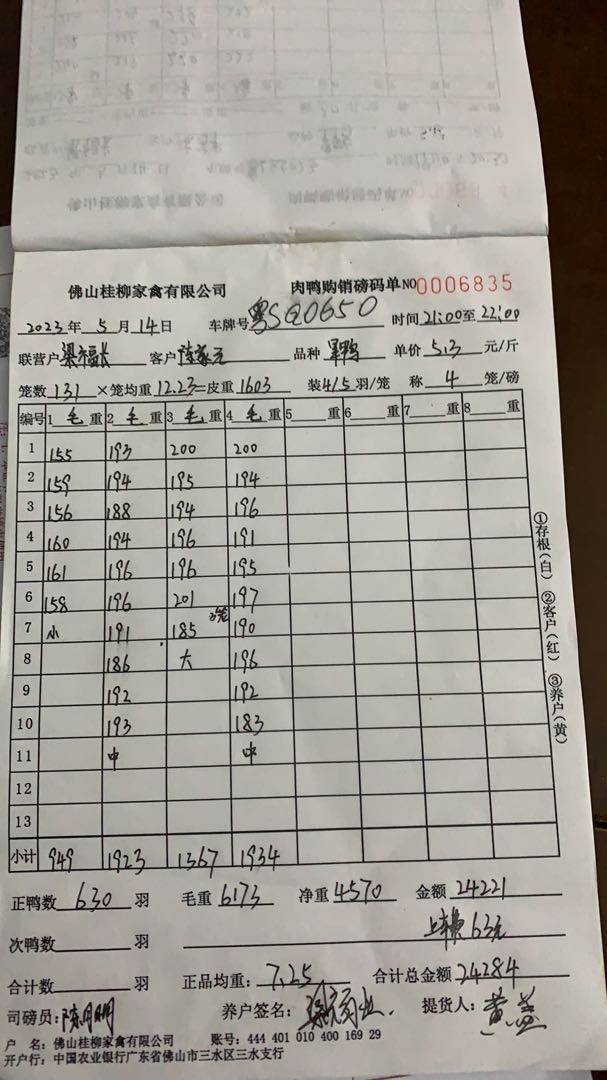 佛山桂柳家禽有限公司 肉鸭购销磅码单 NO 0006835
2023年 5 月 14 日 车牌号 粤SQ0650 时间 21:00 至 22:00
联营户 梁福长 客户 品种 单价 5.3 元/斤
笼数 131 ×笼均重 12.23 =皮重 1603 装 4/5 羽/笼 称 4 笼/磅
编号 1 毛 重 2 毛 重 3 毛 重 4 毛 重 5 重 6 重 7 重 8 重
1 155 193 200 200
2 159 194 195 194
3 156 188 194 196
4 160 194 196 191
5 161 196 196 195
6 158 196 201 197
7 小 191 185 3笼 190
8 186 大 196
9 192 192
10 193 183
11 中 中
12
13
小计 949 1923 1367 1934
正鸭数 630 羽 毛重 6173 净重 4570 金额 24221
次鸭数 羽 上车费 63元
合计数 羽 正品均重: 7.25 合计总金额 24284
司磅员: 陈月明 养户签名: 提货人:
户 名: 佛山桂柳家禽有限公司 账号: 444 401 010 400 169 29
开户行: 中国农业银行广东省佛山市三水区三水支行
①存根(白) ②客户(红) ③养户(黄)